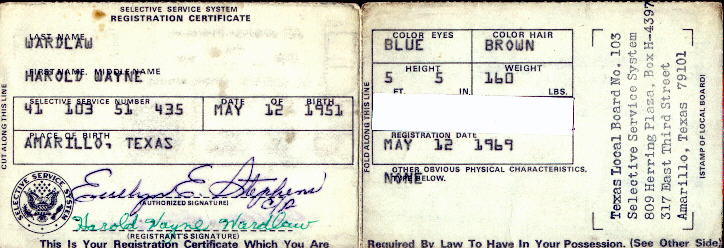 SELECTIVE SERVICE SYSTEM
REGISTRATION CERTIFICATE
LAST NAME
WARDLAW
FIRST NAME, MIDDLE NAME
HAROLD WAYNE
SELECTIVE SERVICE NUMBER
DATE OF BIRTH
41 103 51 435
MAY 12 1951
PLACE OF BIRTH
AMARILLO, TEXAS
SELECTIVE SERVICE SYSTEM
Evelyn E. Stephens
(AUTHORIZED SIGNATURE)
Harold Wayne Wardlaw
(REGISTRANT'S SIGNATURE)
This Is Your Registration Certificate Which You Are
CUT ALONG THIS LINE
FOLD ALONG THIS LINE
COLOR EYES
COLOR HAIR
BLUE
BROWN
HEIGHT
WEIGHT
5 5
160
FT. IN.
LBS.
REGISTRATION DATE
MAY 12 1969
OTHER OBVIOUS PHYSICAL CHARACTERISTICS,
TYPE BELOW.
NONE
Texas Local Board No. 103
Selective Service System
809 Herring Plaza, Box H-4397
317 East Third Street
Amarillo, Texas 79101
(STAMP OF LOCAL BOARD)
Required By Law To Have In Your Possession. (See Other Side